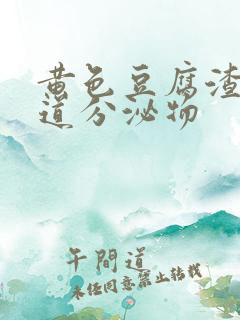 黄色豆腐渣
道分泌物
午間道
未经同意禁止转载